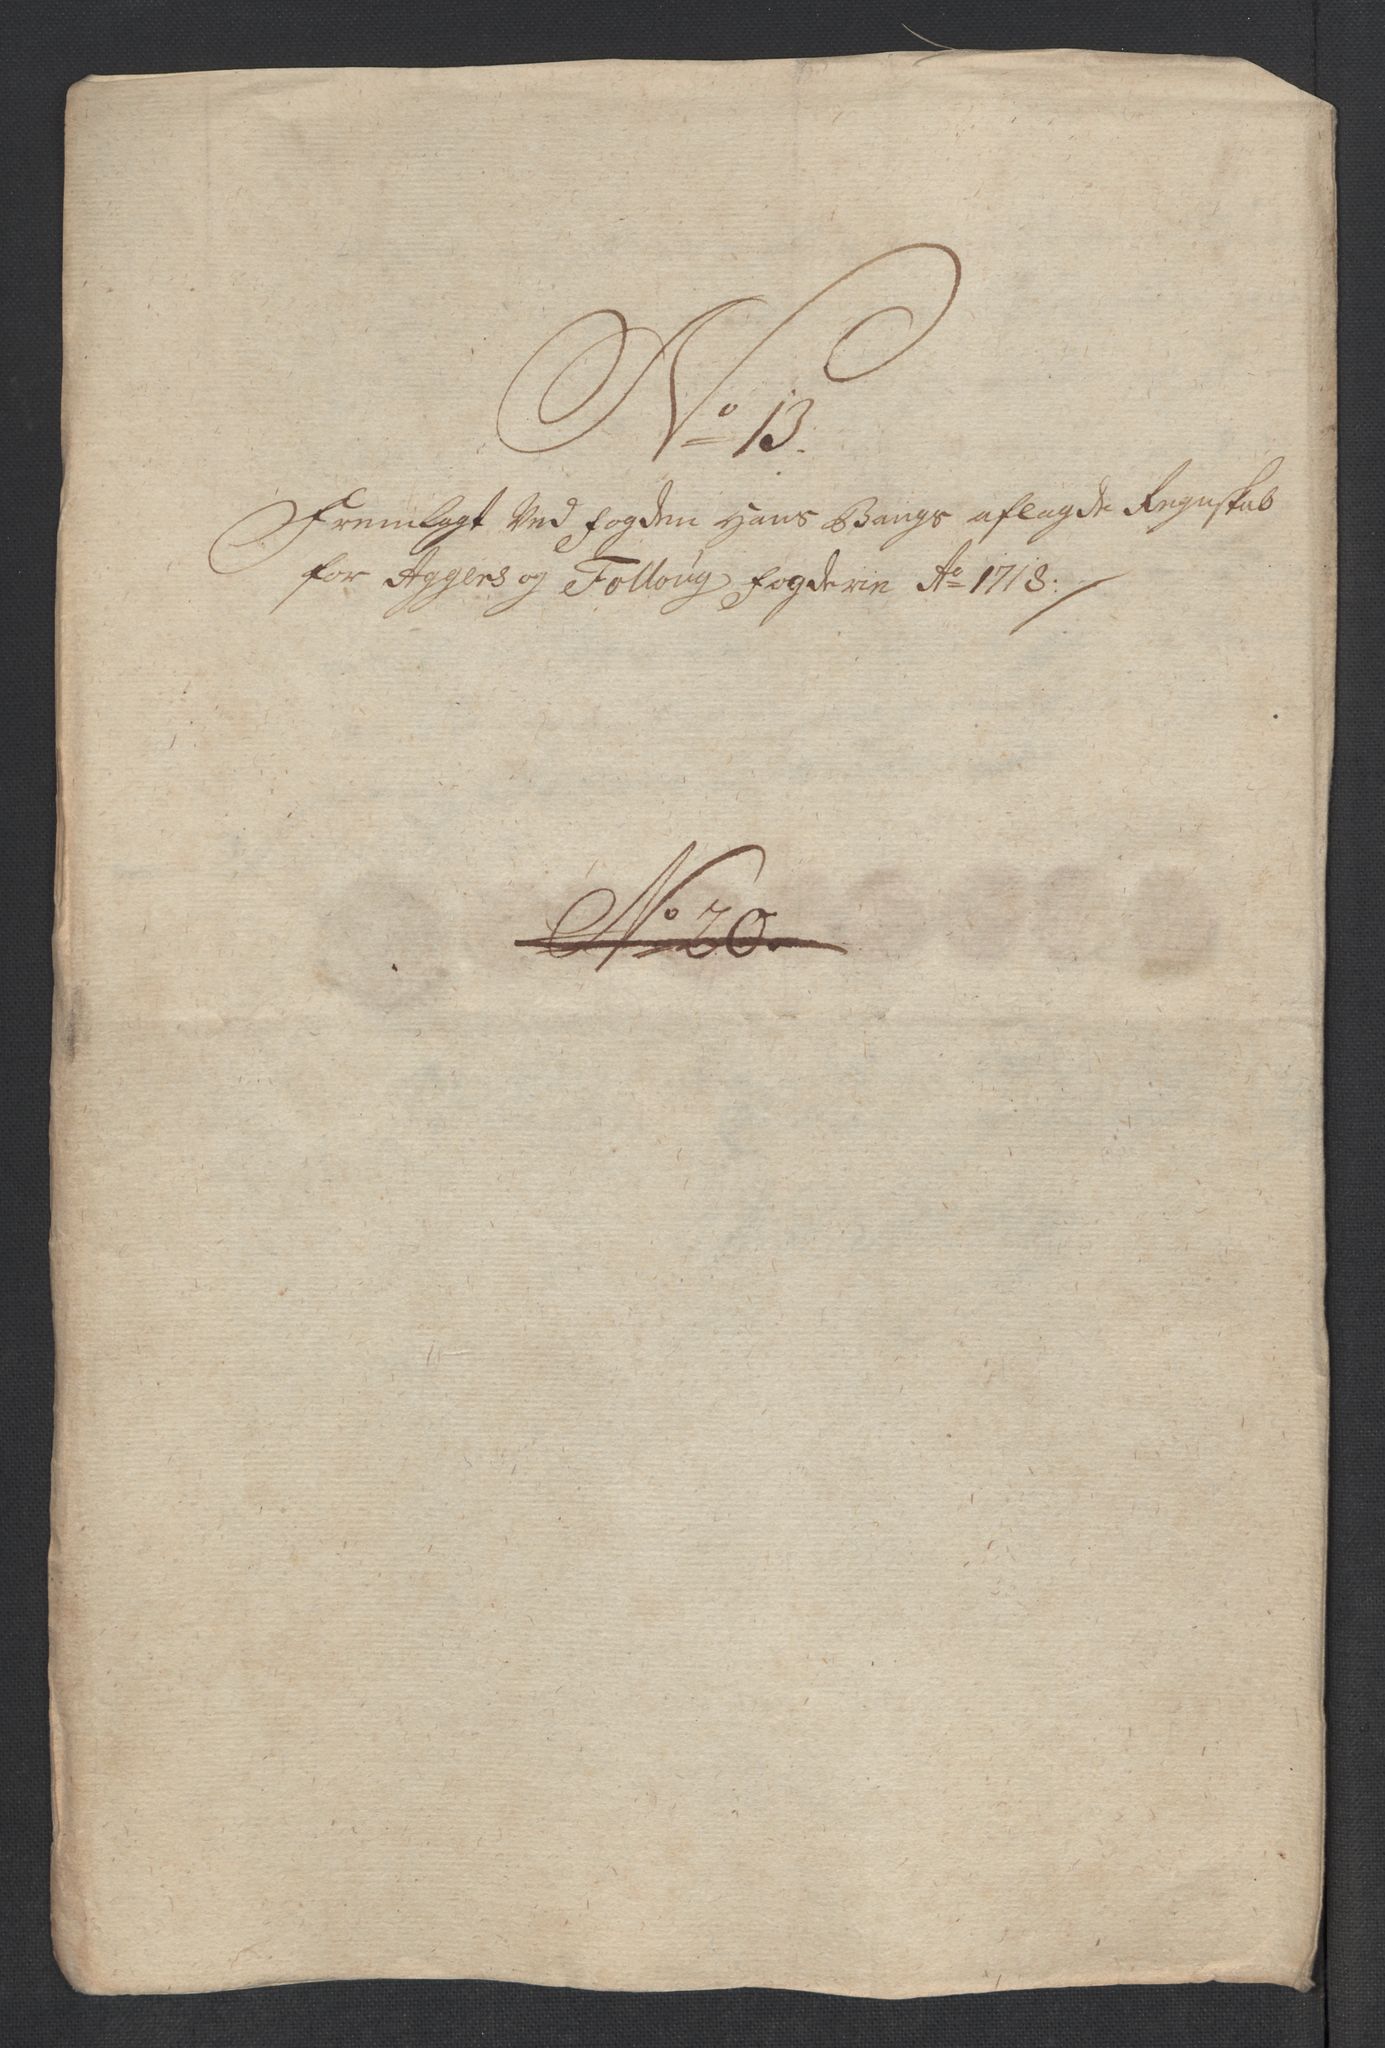 No 13.
Fremlagt Ved fogden Hans Bangs aflagde Regnskab
for Aggers og Folloug fogderie Ao 1718:
No 20.